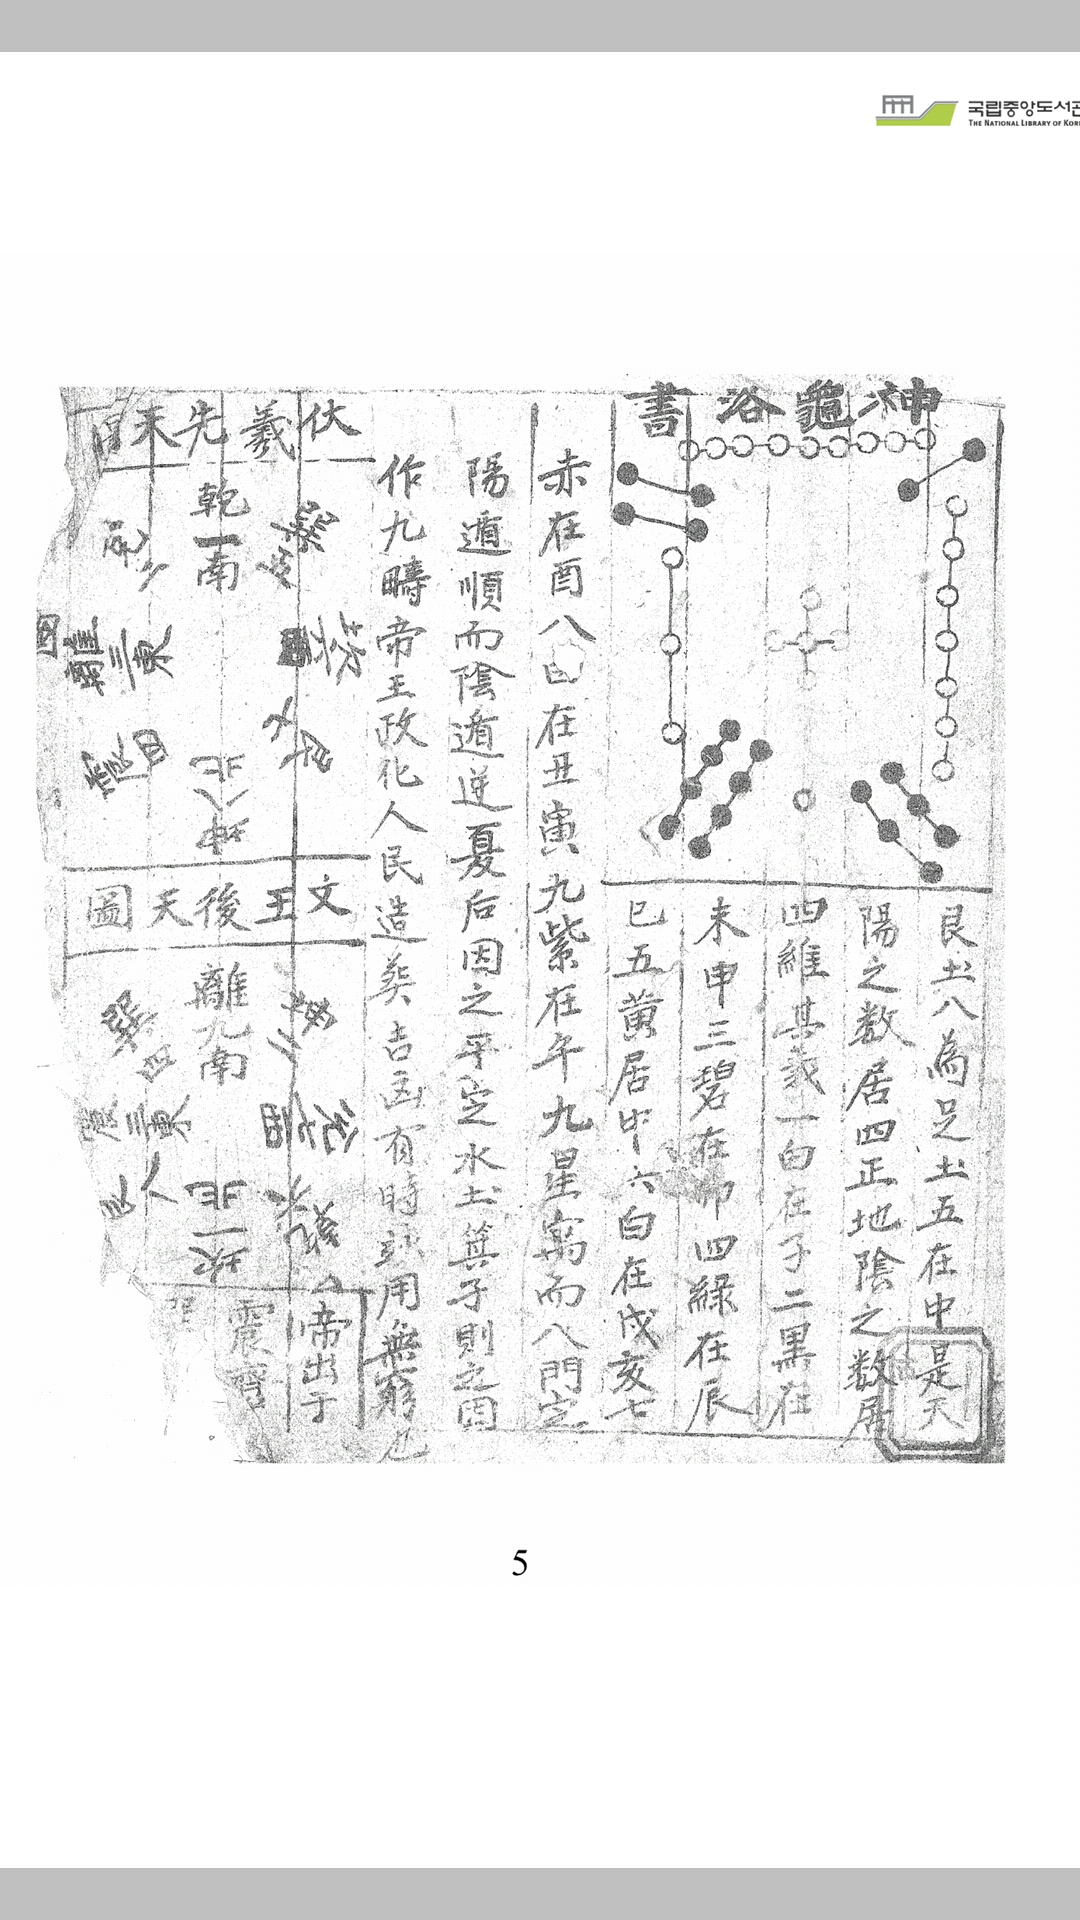 국립중앙도서관
THE NATIONAL LIBRARY OF KOR
神龜洛書
艮土八為足土五在中是天
陽之数居四正地陰之数居
四維其義一白在子二黒在
未申三碧在卯四緑在辰
巳五黄居中六白在戌亥七
赤在酉八白在丑寅九紫在午九星寓而八門定
陽遁順而陰遁逆夏后因之平定水土箕子則之因
作九疇帝王政化人民造葬吉凶有時
用無窮也
伏羲先天
乾一南
巽五
坎六西
艮七
坤八北
震四
離三東
兌二
文王後天圖
離九南
坤二
兌七西
乾六
坎一北
艮八
震三東
巽四
帝出于
震齊
5